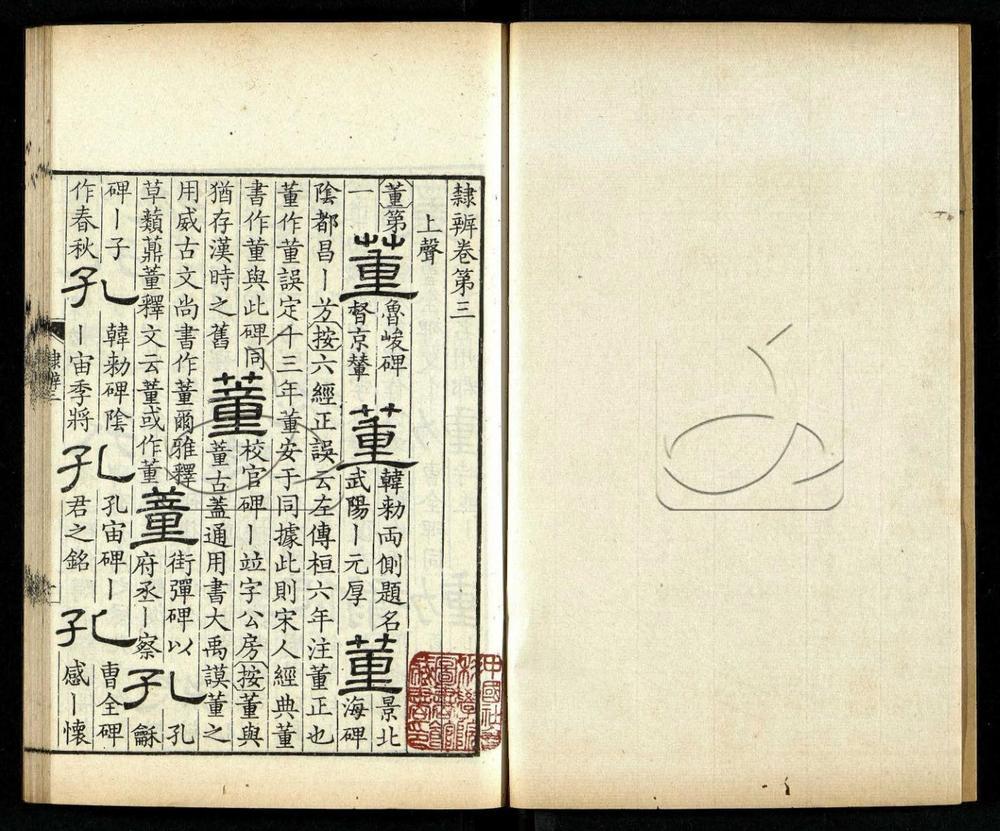 隸辨卷第三
上聲
董第一
董
魯峻碑
督京輦
董
韓勑両側題名
武陽丨元厚
董
景北海碑
陰都昌丨 按六經正誤云左傳桓六年注董正也
董作董誤定十三年董安于同據此則宋人經典董
書作董與此碑同
猶存漢時之舊
蕫
校官碑丨竝字公房按董與
董古蓋通用書大禹謨董之
用威古文尚書作董爾雅釋
草蘱薡董釋文云董或作董
蕫
街彈碑以
府丞丨察
孔
孔龢
碑丨子
作春秋
孔
韓勑碑陰
丨宙季將
孔
孔宙碑丨
君之銘
孔
曹全碑
感丨懷
隸辨三
一
中國社
科學院
圖書館